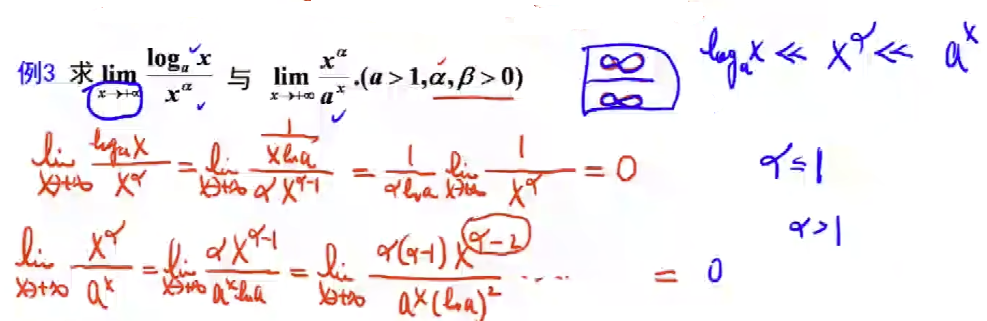 例3 求 lim_{x→+∞} log_a x / x^α 与 lim_{x→+∞} x^α / a^x .(a>1,α,β>0)
∞/∞
log_a x ≪ x^α ≪ a^x
lim_{x→+∞} log_a x / x^α = lim_{x→+∞} (1/(x ln a)) / (α x^{α-1}) = 1/(α ln a) lim_{x→+∞} 1/x^α = 0
α≤1
α>1
lim_{x→+∞} x^α / a^x = lim_{x→+∞} α x^{α-1} / (a^x ln a) = lim_{x→+∞} α(α-1) x^{α-2} / (a^x (ln a)^2) ...... = 0